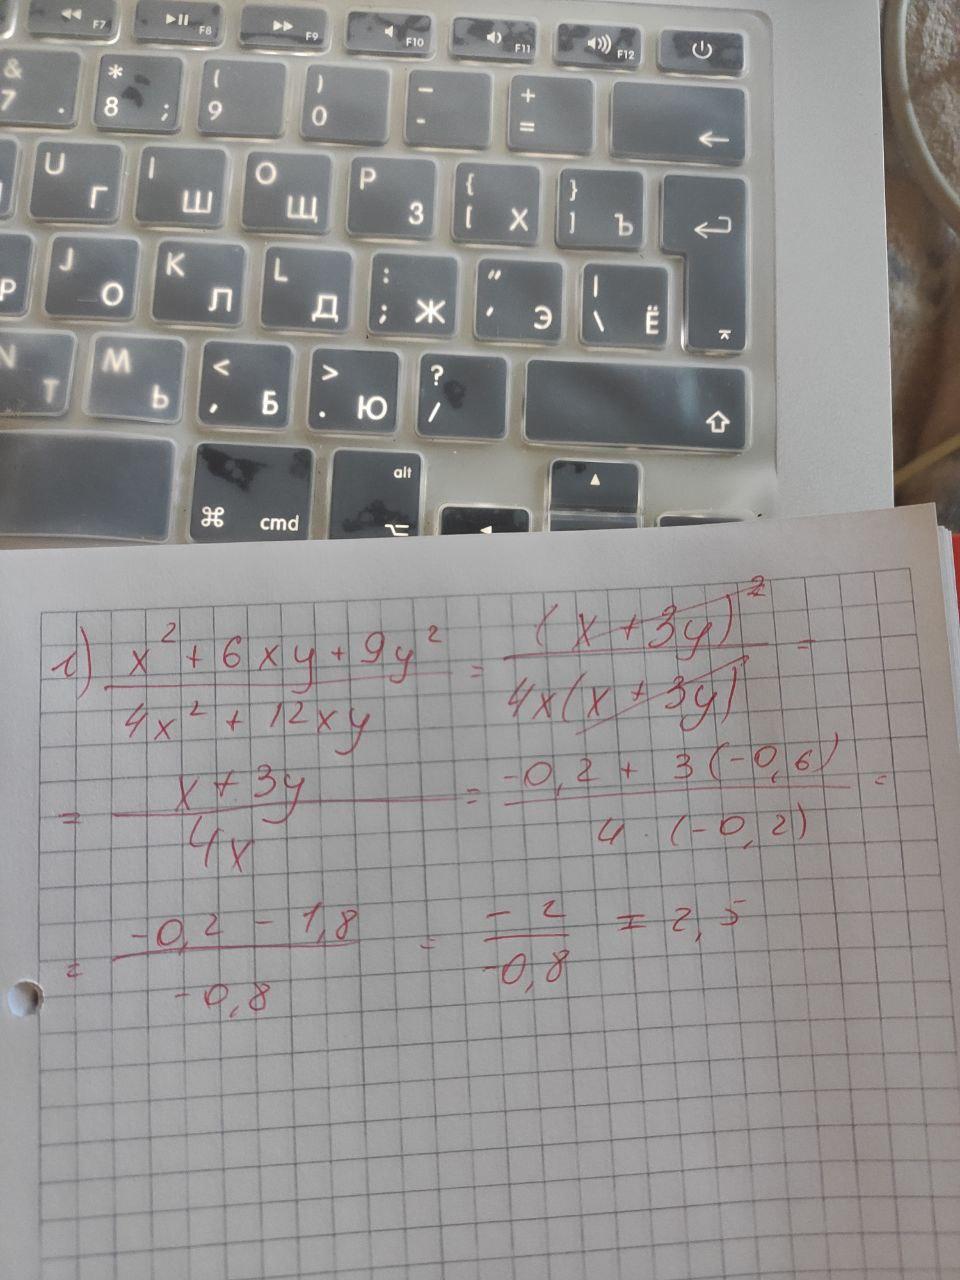 F7 F8 F9 F10 F11 F12
& 7 . * 8 ; ( 9 ) 0 _ - + =
U Г I Ш O Щ P З { [ Х } ] Ъ
Р J О K Л L Д : ; Ж " ' Э | \ Ё
N Т M Ь < , Б > . Ю ? /
cmd alt
с) (x² + 6xy + 9y²)/(4x² + 12xy) = (x + 3y)²/(4x(x + 3y)) =
= (x + 3y)/(4x) = (-0,2 + 3(-0,6))/(4 · (-0,2)) =
= (-0,2 - 1,8)/(-0,8) = (-2)/(-0,8) = 2,5